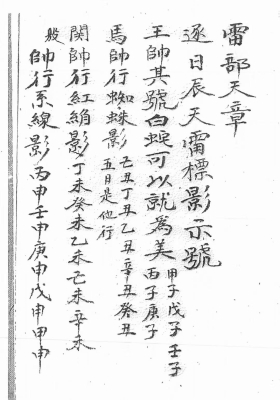 雷部天章
逐日辰天雷標影示號
王帥其號白蜈可以就為美 甲子戊子壬子
丙子庚子
馬帥行蜘蛛影 己丑丁丑乙丑辛丑癸丑
五日是他行
関帥行紅絹影 丁未癸未乙未己未辛未
殷帥行系線影 丙申壬申庚申戊申甲申